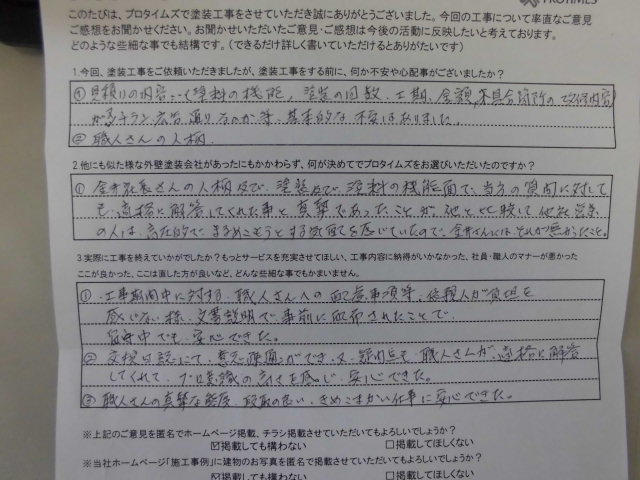 このたびは、プロタイムズで塗装工事をさせていただき誠にありがとうございました。今回の工事について率直なご意見
ご感想をお聞かせください。お聞かせいただいたご意見・ご感想は今後の活動に反映したいと考えております。
どのような些細な事でも結構です。（できるだけ詳しく書いていただけるとありがたいです）
1.今回、塗装工事をご依頼いただきましたが、塗装工事をする前に、何か不安や心配事がございましたか？
① 見積りの内容 塗料の機能、塗装の回数、工期、金額、不具合箇所の改修内容
が チラシ、広告通りなのか等、基本的な不安はありました。
② 職人さんの人柄
2.他にも似た様な外壁塗装会社があったにもかかわらず、何が決めてでプロタイムズをお選びいただいたのですか？
① 金井 さんの人柄及び、塗装及び、塗料の機能面で、当方の質問に対して
も、適格に解答してくれた事と真摯であったことが、他と比較して他社営業
の人は、高圧的で、まるめこもうとする 感じていたので、金井さんにはそれが無かったこと。
3.実際に工事を終えていかがでしたか？もっとサービスを充実させてほしい、工事内容に納得がいかなかった、社員・職人のマナーが悪かった
ここが良かった、ここは直した方が良いなど、どんな些細な事でもかまいません。
① 工事期間中に対する、職人さんへの配慮事項等、依頼人が負担を
感じない様、文書説明で事前に配布されたことで、
留守中でも、安心できた。
② 意思疎通ができ、又、疑問点も、職人さんが、適格に解答
してくれて、プロ意識の高さを感じ、安心できた。
③ 職人さんの真摯な態度、段取の良い、きめこまかい仕事に安心できた。
※上記のご意見を匿名でホームページ掲載、チラシ掲載させていただいてもよろしいでしょうか？
☑掲載しても構わない □掲載してほしくない
※当社ホームページ「施工事例」に建物のお写真を匿名で掲載させていただいてもよろしいでしょうか？
☑掲載しても構わない □掲載してほしくない